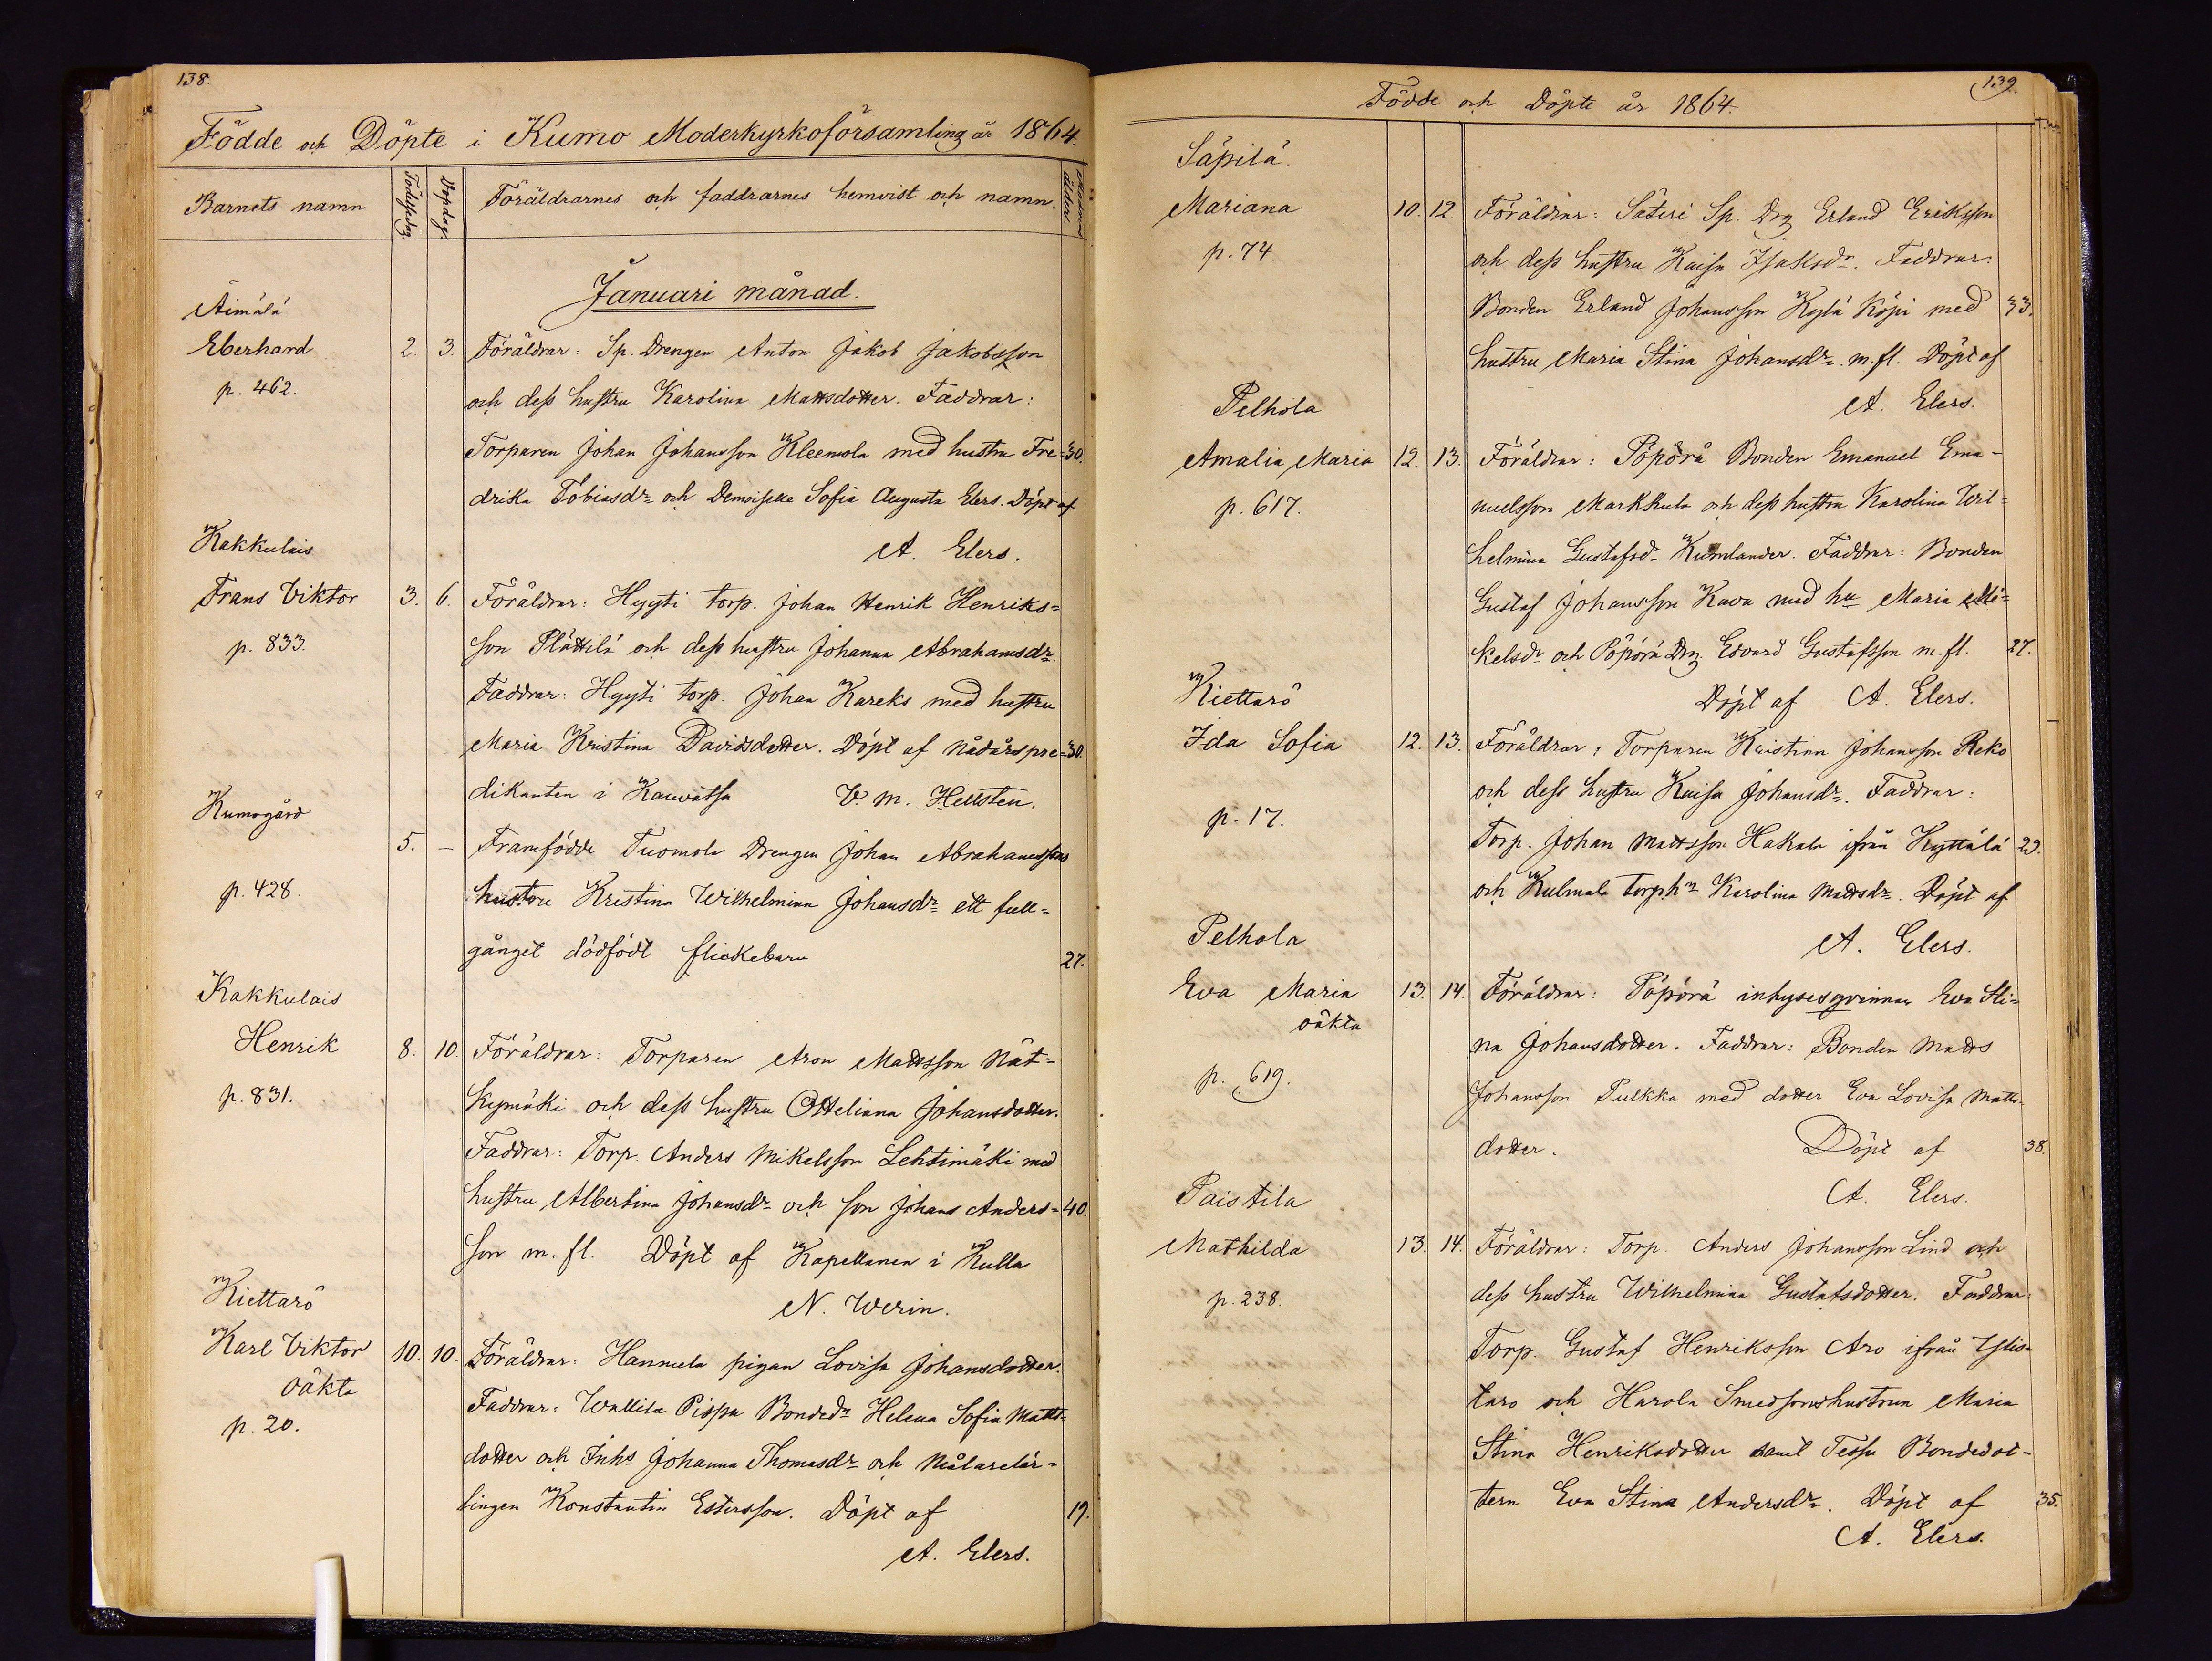 138.
Födde och Döpte i Kumo Moderkyrkoförsamling år 1864.
Barnets namn
Födelsedag.
Dopdag.
Föräldrarnes och faddrarnes hemvist och namn.
Modrens ålder.
Januari månad.
Äimälä
Eberhard 2. 3. Föräldrar: Sp. Drengen Anton Jakob Jakobsson
p. 462. och dess hustru Karolina Mattsdotter. Faddrar:
Torparen Johan Johansson Kleemola med hustru Fre= 30.
drika Tobiasdr och Demoiselle Sofia Augusta Elers. Döpt af
Kakkulais A. Elers.
Frans Viktor 3. 6. Föräldrar: Hyyti torp. Johan Henrik Henriks=
p. 833. son Plättilä och dess hustru Johanna Abrahamsdr.
Faddrar: Hyyti torp. Johan Kareks med hustru
Maria Kristina Davidsdotter. Döpt af Nådårspre= 30.
dikanten i Kauvatsa V. M. Hellsten.
Kumogård
5. — Framfödde Tuomola Drengen Johan Abrahamssons
p. 428. hustru Kristina Wilhelmina Johansdr ett full=
gånget dödfödt flickebarn 27.
Kakkulais
Henrik 8. 10. Föräldrar: Torparen Aron Mattsson Nät=
p. 831. kymäki och dess hustru Otteliana Johansdotter.
Faddrar: Torp. Anders Mikelsson Lehtimäki med
hustru Albertina Johansdr och son Johans Anders= 40.
son m. fl. Döpt af Kapellanen i Kulla
Kiettarö N. Werin.
Karl Viktor 10. 10. Föräldrar: Hannula pigan Lovisa Johansdotter.
oäkta Faddrar: Wallila Pispa Bondedr Helena Sofia Matts=
p. 20. dotter och Inhs Johanna Thomasdr och Målarelär=
lingen Konstantin Estersson. Döpt af 19.
A. Elers.
139.
Födde och Döpte år 1864.
Säpilä.
Mariana 10. 12. Föräldrar: Säteri Sp. Drg Erland Eriksson
p. 74. och dess hustru Kaisa Isaksdr. Faddrar:
Bonden Erland Johansson Kylä Köpi med 33.
hustru Maria Stina Johansdr. m. fl. Döpt af
Pelhola A. Elers.
Amalia Maria 12. 13. Föräldrar: Pöpörä Bonden Emanuel Ema-
p. 617. nuelsson Markkula och dess hustru Karolina Wil=
helmina Gustafsdr Kumlander. Faddrar: Bonden
Gustaf Johansson Kava med hu Maria Mi=
kelsdr och Pöpörä Drg. Edvard Gustafsson m. fl. 27.
Kiettarö Döpt af A. Elers.
Ida Sofia 12. 13. Föräldrar: Torparen Kristian Johansson Reko
och dess hustru Kaisa Johansdr. Faddrar:
p. 17. Torp. Johan Mattsson Hakala ifrån Kyttälä 29.
och Kulmala torp.hu Karolina Mattsdr. Döpt af
Pelhola A. Elers.
Eva Maria 13. 14. Föräldrar: Pöpörä inhysesqvinnan Eva Sti=
oäkta na Johansdotter. Faddrar: Bonden Matts
p. 619. Johansson Pulkka med dotter Eva Lovisa Matts-
dotter. Döpt af 38.
Paistila A. Elers.
Mathilda 13. 14. Föräldrar: Torp. Anders Johansson Lind och
p. 238. dess hustru Wilhelmina Gustafsdotter. Faddrar:
Torp. Gustaf Henriksson Aro ifrån Ylis-
taro och Harola Smedsonshustrun Maria
Stina Henriksdotter samt Tessu Bondedot-
tern Eva Stina Andersdr. Döpt af 35.
A. Elers.